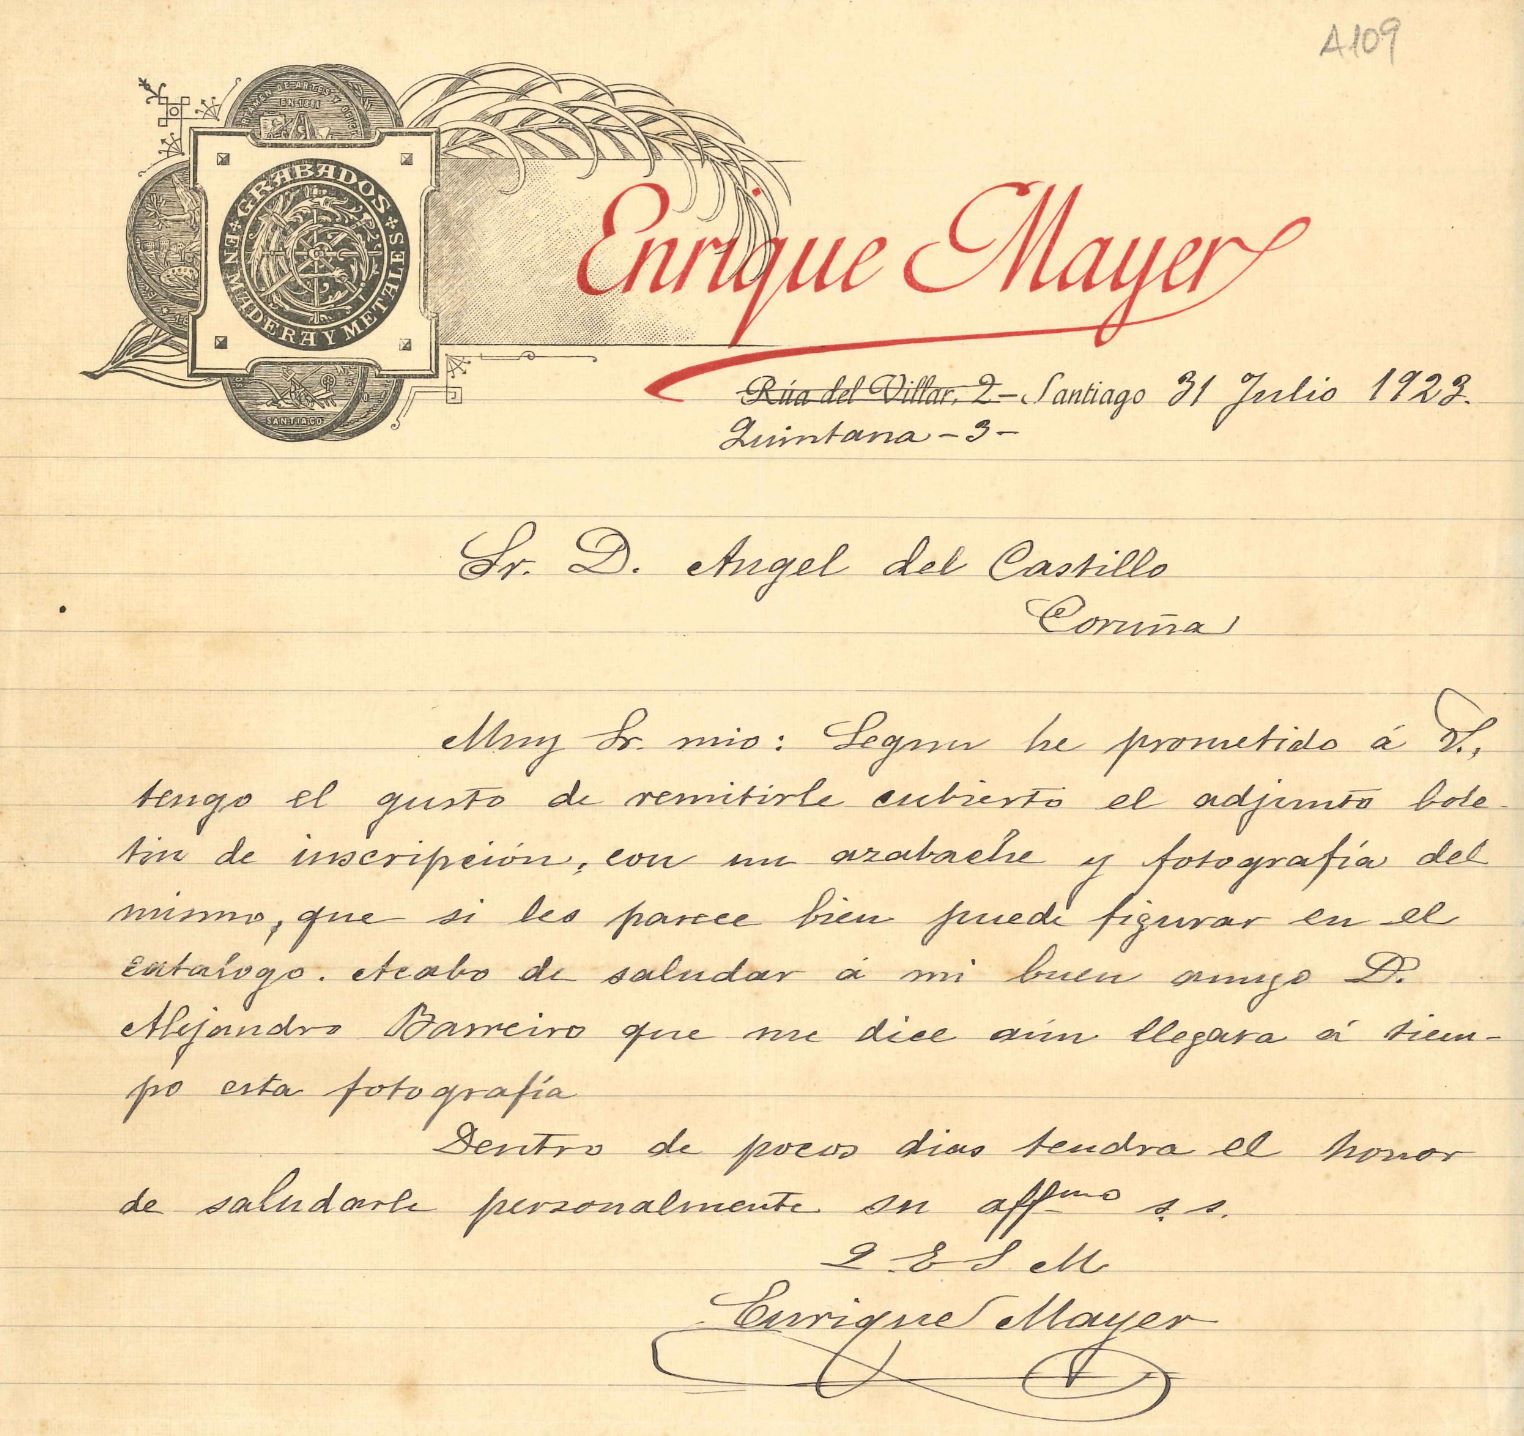 A109
CERTAMEN DE ARTES Y OFICIOS
EN 1881
GRABADOS
EN MADERA Y METALES
SANTIAGO
Enrique Mayer
Rúa del Villar, 2 - Santiago 31 Julio 1923.
Quintana - 3 -
Sr. D. Angel del Castillo
Coruña
Muy Sr. mio: Segun he prometido á V.,
tengo el gusto de remitirle cubierto el adjunto bole-
tin de inscripción, con un azabache y fotografía del
mismo, que si les parece bien puede figurar en el
catalogo. Acabo de saludar á mi buen amigo D.
Alejandro Barreiro que me dice aún llegara á tiem-
po esta fotografía
Dentro de pocos dias tendra el honor
de saludarle personalmente su affmo s. s.
Q E S M
Enrique Mayer